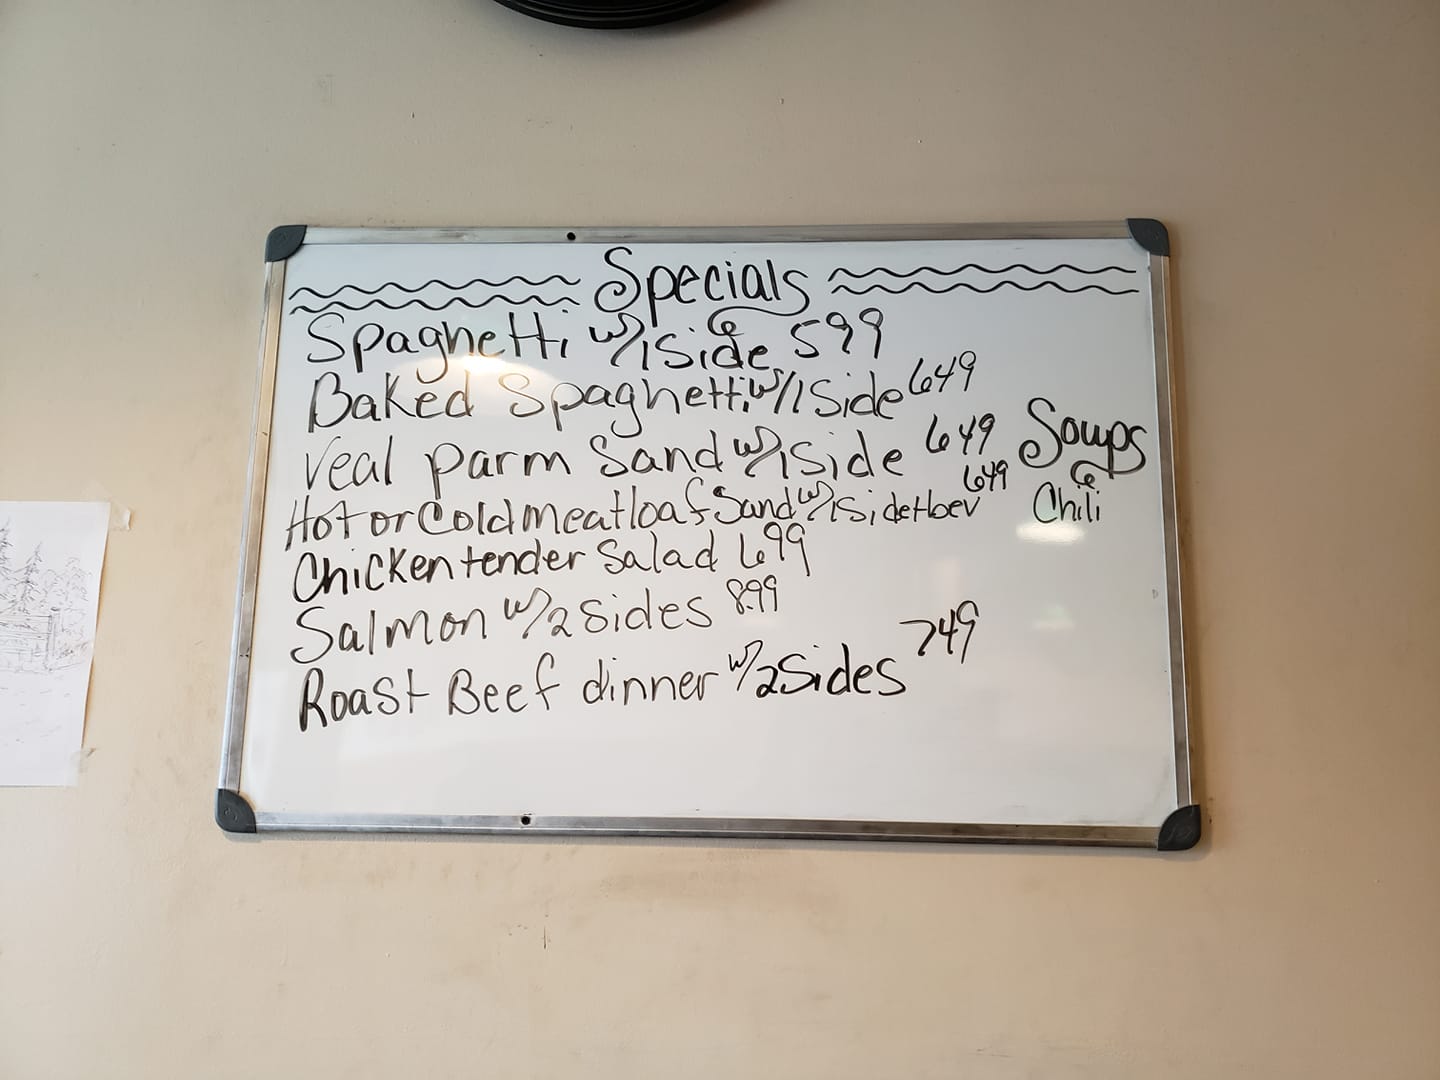 Specials
Spaghetti w/1side 599
Baked Spaghetti w/1Side 649
Veal parm Sand w/1side 649
Hot or Cold meatloaf Sand w/1Side+bev 649
Chicken tender Salad 699
Salmon w/2sides 8.99
Roast Beef dinner w/2Sides 749
Soups
Chili